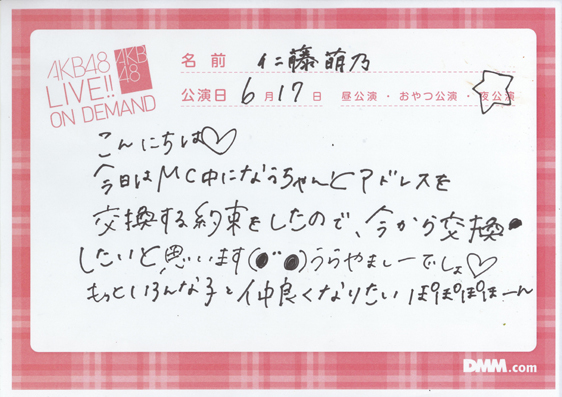 AKB48
LIVE!!
ON DEMAND
AKB
48
名前 仁藤萌乃
公演日 6月17日 昼公演・おやつ公演・夜公演
こんにちは♡
今日はMC中になうちゃんとアドレスを
交換する約束をしたので、今から交換
したいと思います(●¨●)うらやましーでしょ♡
もっといろんな子と仲良くなりたい ぽぽぽぽーん
DMM.com